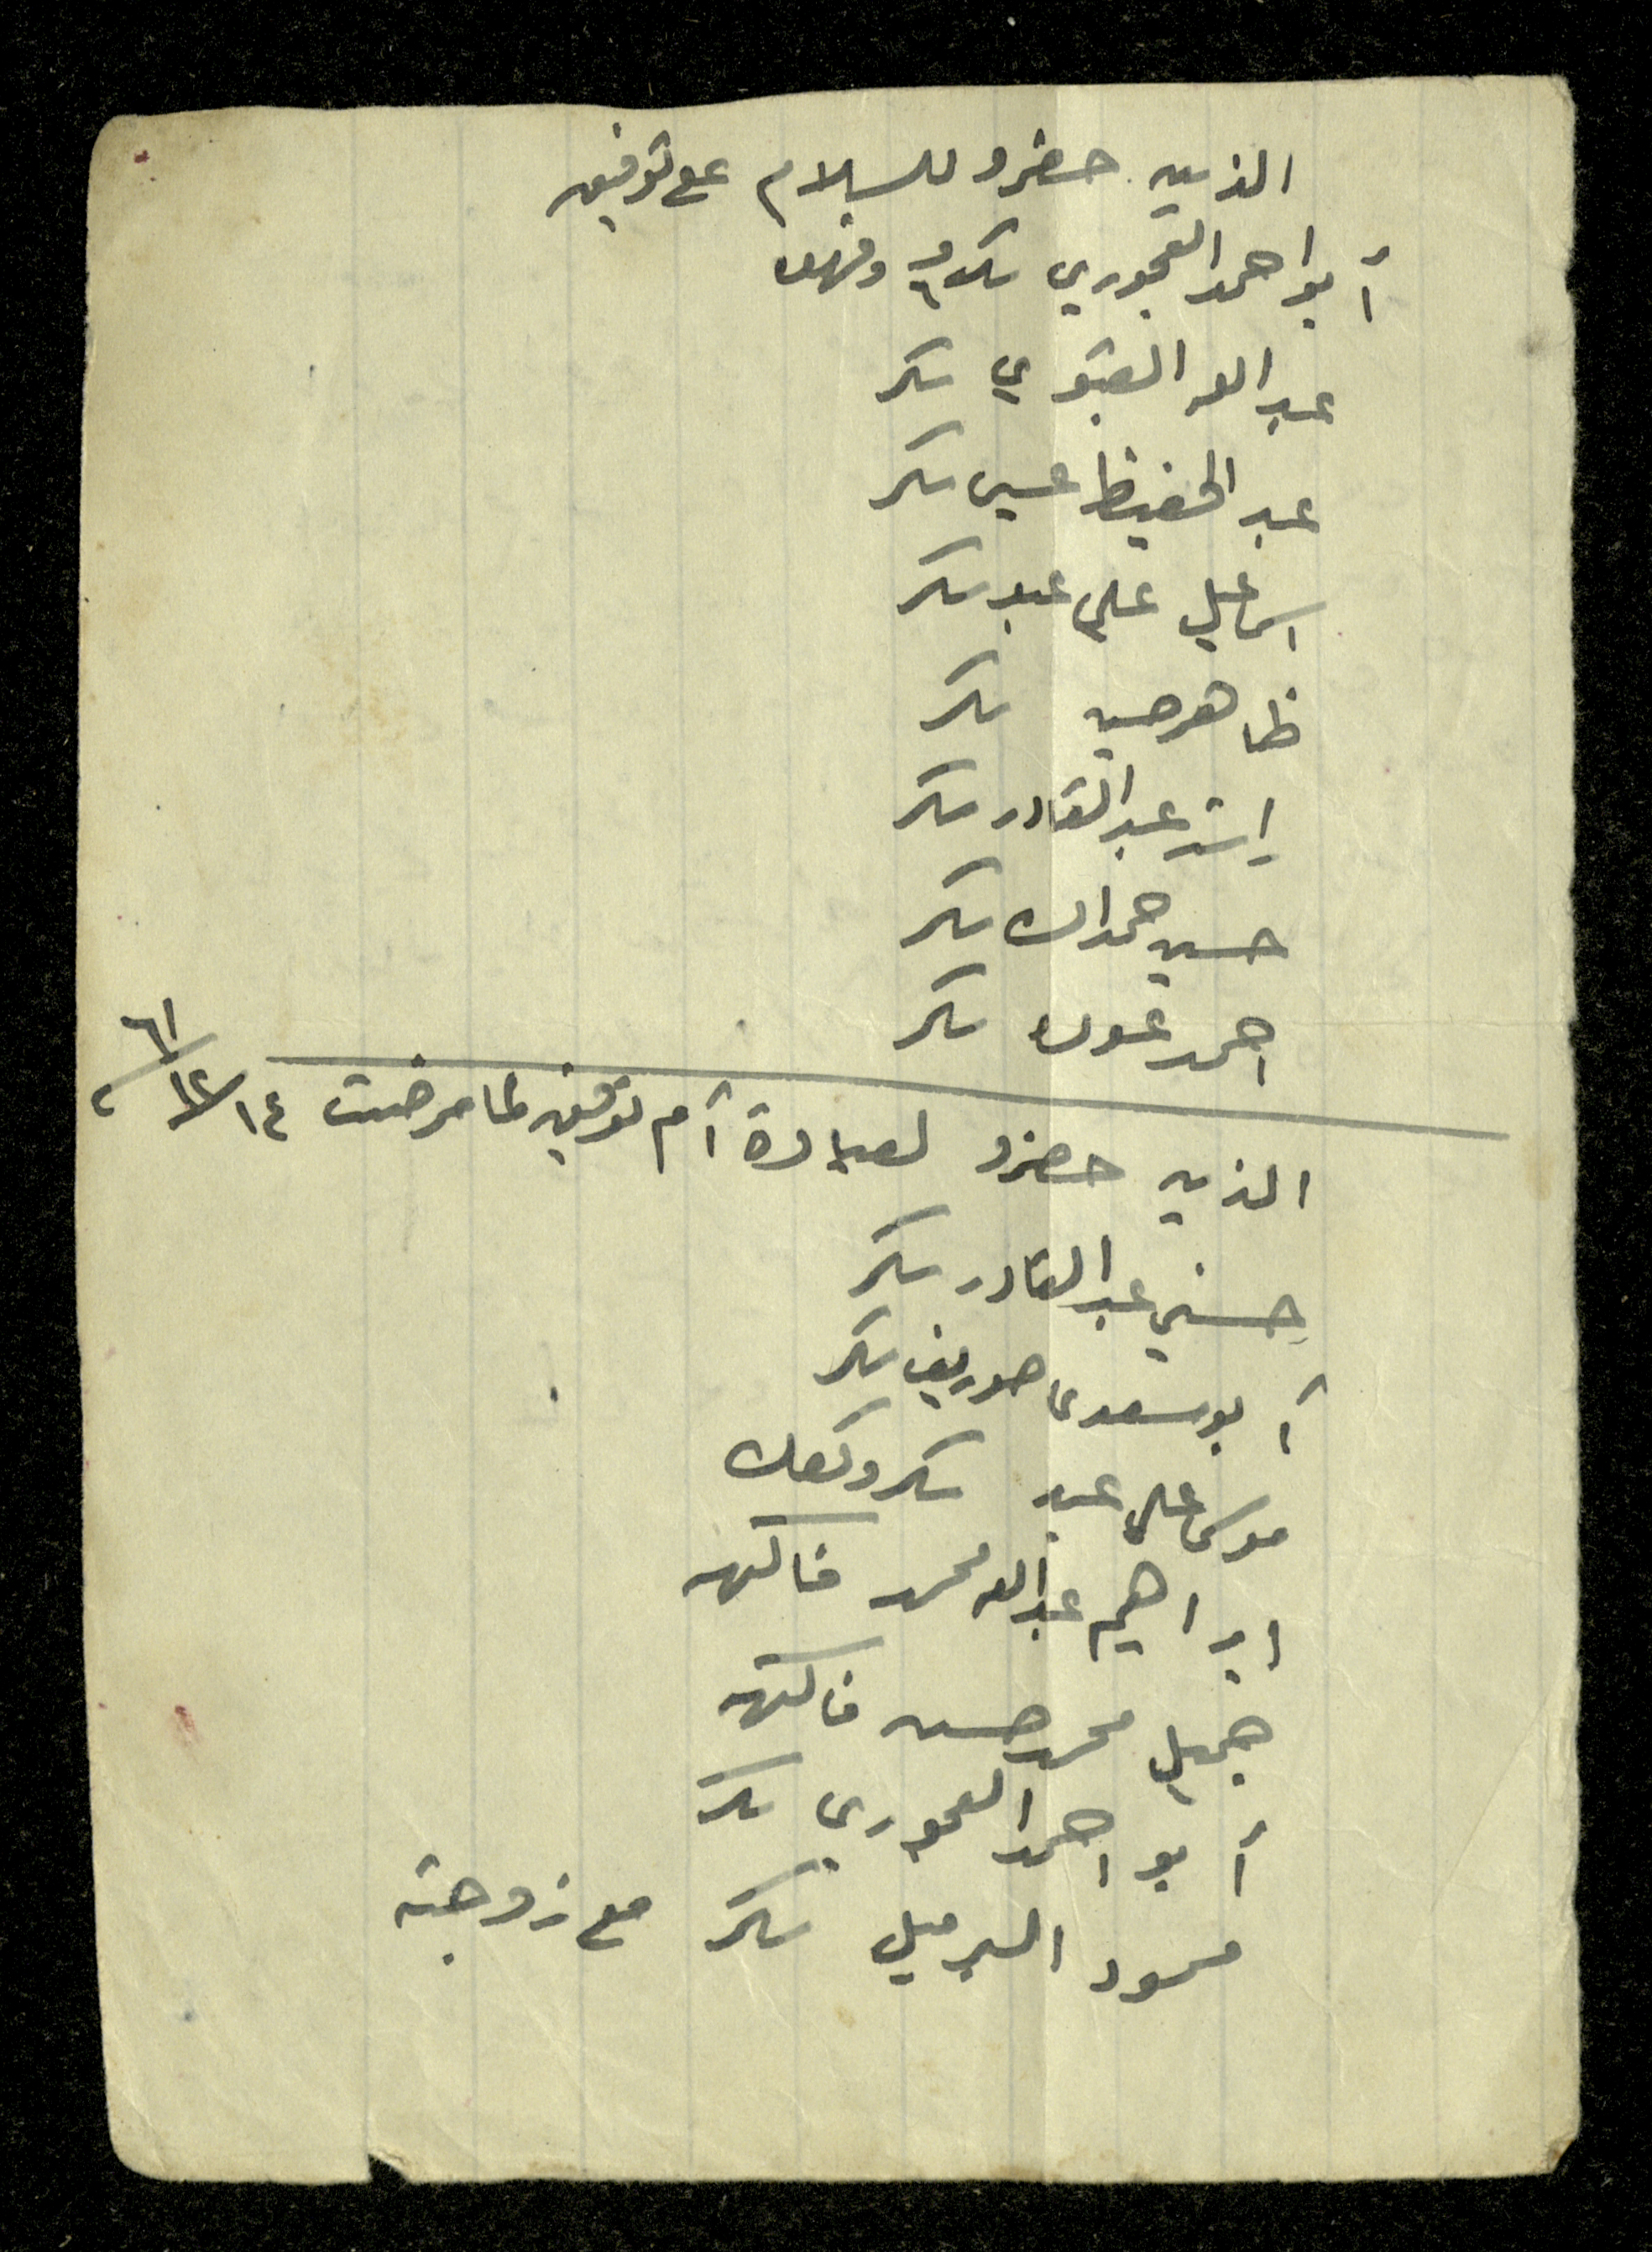 الذين حضرو للسلام على توفيق
أبو احمد العجوري سكر وقهوه
عبد الله العبقوي سكر
عبد الحفيظ عيسى سكر
اسماعيل علي عبد سكر
ظاهر حسين سكر
راشد عبد القادر سكر
حسين حمدان سكر
احمد عون سكر
الذين حضرو لعيادة أم توفيق لما مرضت ١٤/١٢/٦١
حسني عبد القادر سكر
أبو سعدى سكر
موسى علي عبد سكر وكعك
ابراهيم عبد الله محمد فاكهه
جميل محمد حسن فاكهه
أبو احمد العجوري سكر
محمود البرميل سكر مع زوجته